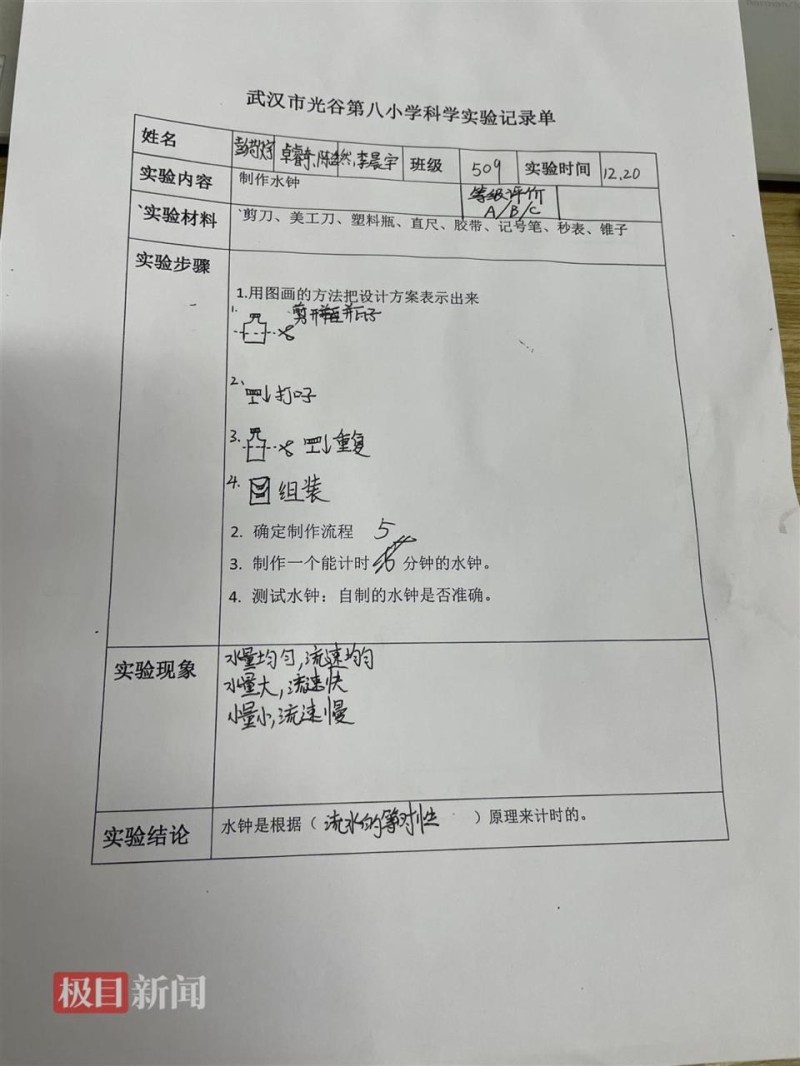 武汉市光谷第八小学科学实验记录单
姓名 卓睿 李晨宇 班级 509 实验时间 12.20
实验内容 制作水钟 等级评价 A/B/C
实验材料 剪刀、美工刀、塑料瓶、直尺、胶带、记号笔、秒表、锥子
实验步骤
1.用图画的方法把设计方案表示出来
1. 剪开 瓶子
2、打
3. 重复
4. 组装
2. 确定制作流程
3. 制作一个能计时 5 分钟的水钟。
4. 测试水钟：自制的水钟是否准确。
实验现象 水量均匀,流速均匀
水量大,流速快
水量小,流速慢
实验结论 水钟是根据（流水的等时性）原理来计时的。
极目新闻